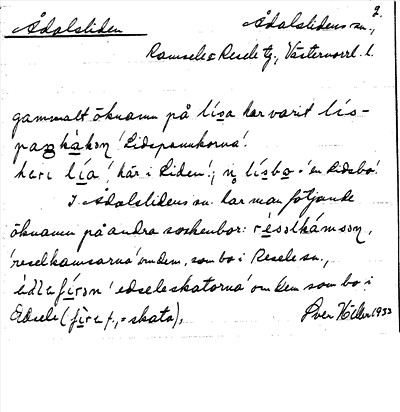 2.
Ådalsliden
Ådalslidens sn.,
Ramsele o Resele tg., Västernorrl. l.
gammalt öknamn på lísa har varit lís-
'Lidspannkorna'.
heri lía 'här i Liden'; lísbo 'en Lidsbo'.
I Ådalslidens sn. har man följande
öknamn på andra sockenbor: résolkámson,
'reselkamsarna' om dem, som bo i Resele sn.,
'edseleskatorna' om dem som bo i
Edsele (fìra f., = skata).
1933